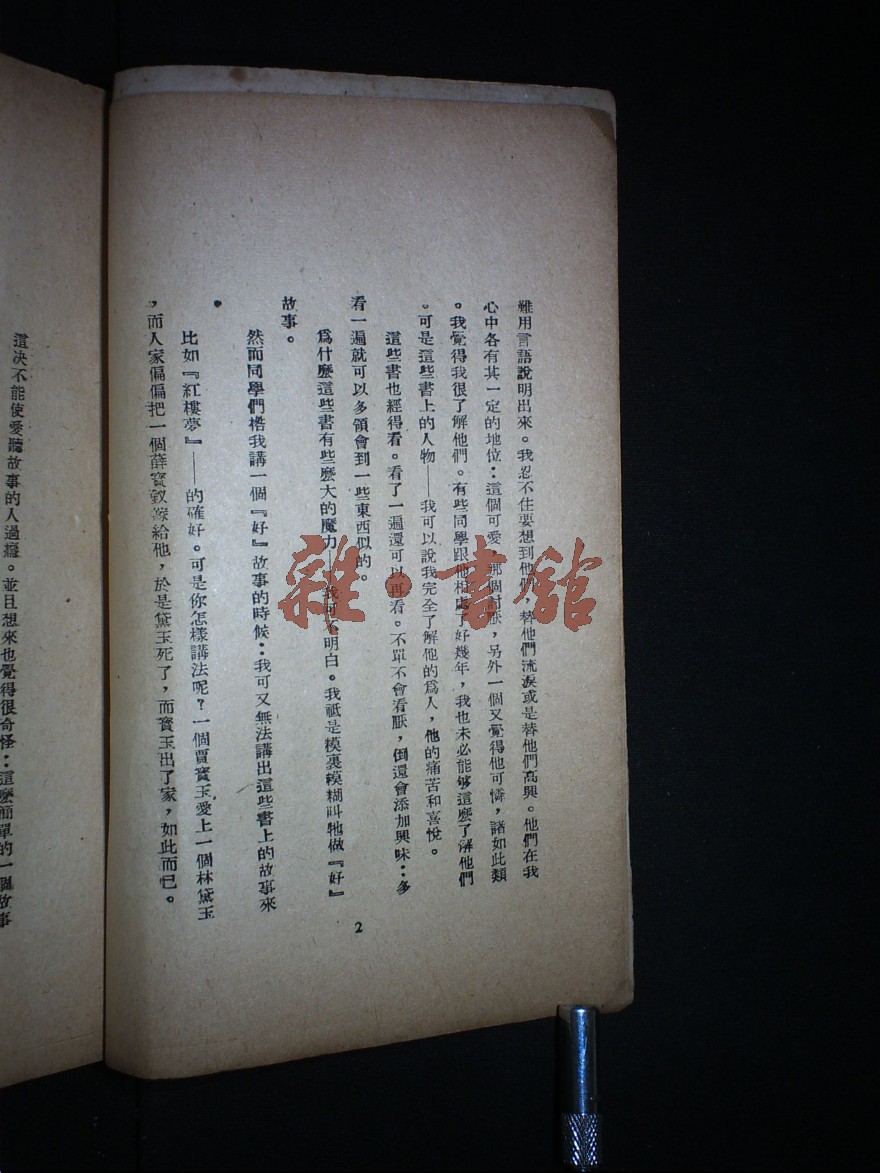 難用言語說明出來。我忍不住要想到他們，替他們流淚或是替他們高興。他們在我
心中各有其一定的地位：這個可愛，那個討厭，另外一個又覺得他可憐，諸如此類
。我覺得我很了解他們。有些同學跟他相處了好幾年，我也未必能够這麼了解他們
。可是這些書上的人物——我可以說我完全了解他的爲人，他的痛苦和喜悅。
這些書也經得看。看了一遍還可以再看。不單不會看厭，倒還會添加興味：多
看一遍就可以多領會到一些東西似的。
爲什麼這些書有些麼大的魔力——我可不明白。我祗是模裏糢糊叫牠做『好』
故事。
然而同學們楷我講一個『好』故事的時候：我可又無法講出這些書上的故事來
。
比如『紅樓夢』——的確好。可是你怎樣講法呢？一個賈寶玉愛上一個林黛玉
，而人家偏偏把一個薛寶釵嫁給他，於是黛玉死了，而寶玉出了家，如此而已。
2
這决不能使愛聽故事的人過癮。並且想來也覺得很奇怪：這麼簡單的一個故事
雜·書館